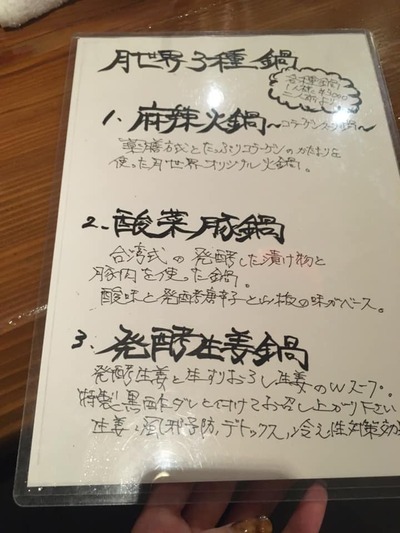 月世界3種鍋
各種
1人
二人前より
1. 麻辣火鍋〜コラーゲン
薬膳 とたっぷりコラーゲンのかたまりを
使った月世界オリジナル火鍋。
2. 酸菜豚鍋
台湾式の発酵した漬け物と
豚肉を使った鍋。
酸味と発酵唐辛子と山椒の味がベース。
3. 発酵生姜鍋
発酵生姜と生すりおろし生姜のWスープ。
特製黒酢ダレと付けてお召し上がり下さい
生姜 風邪予防、デトックス、冷え性対策効